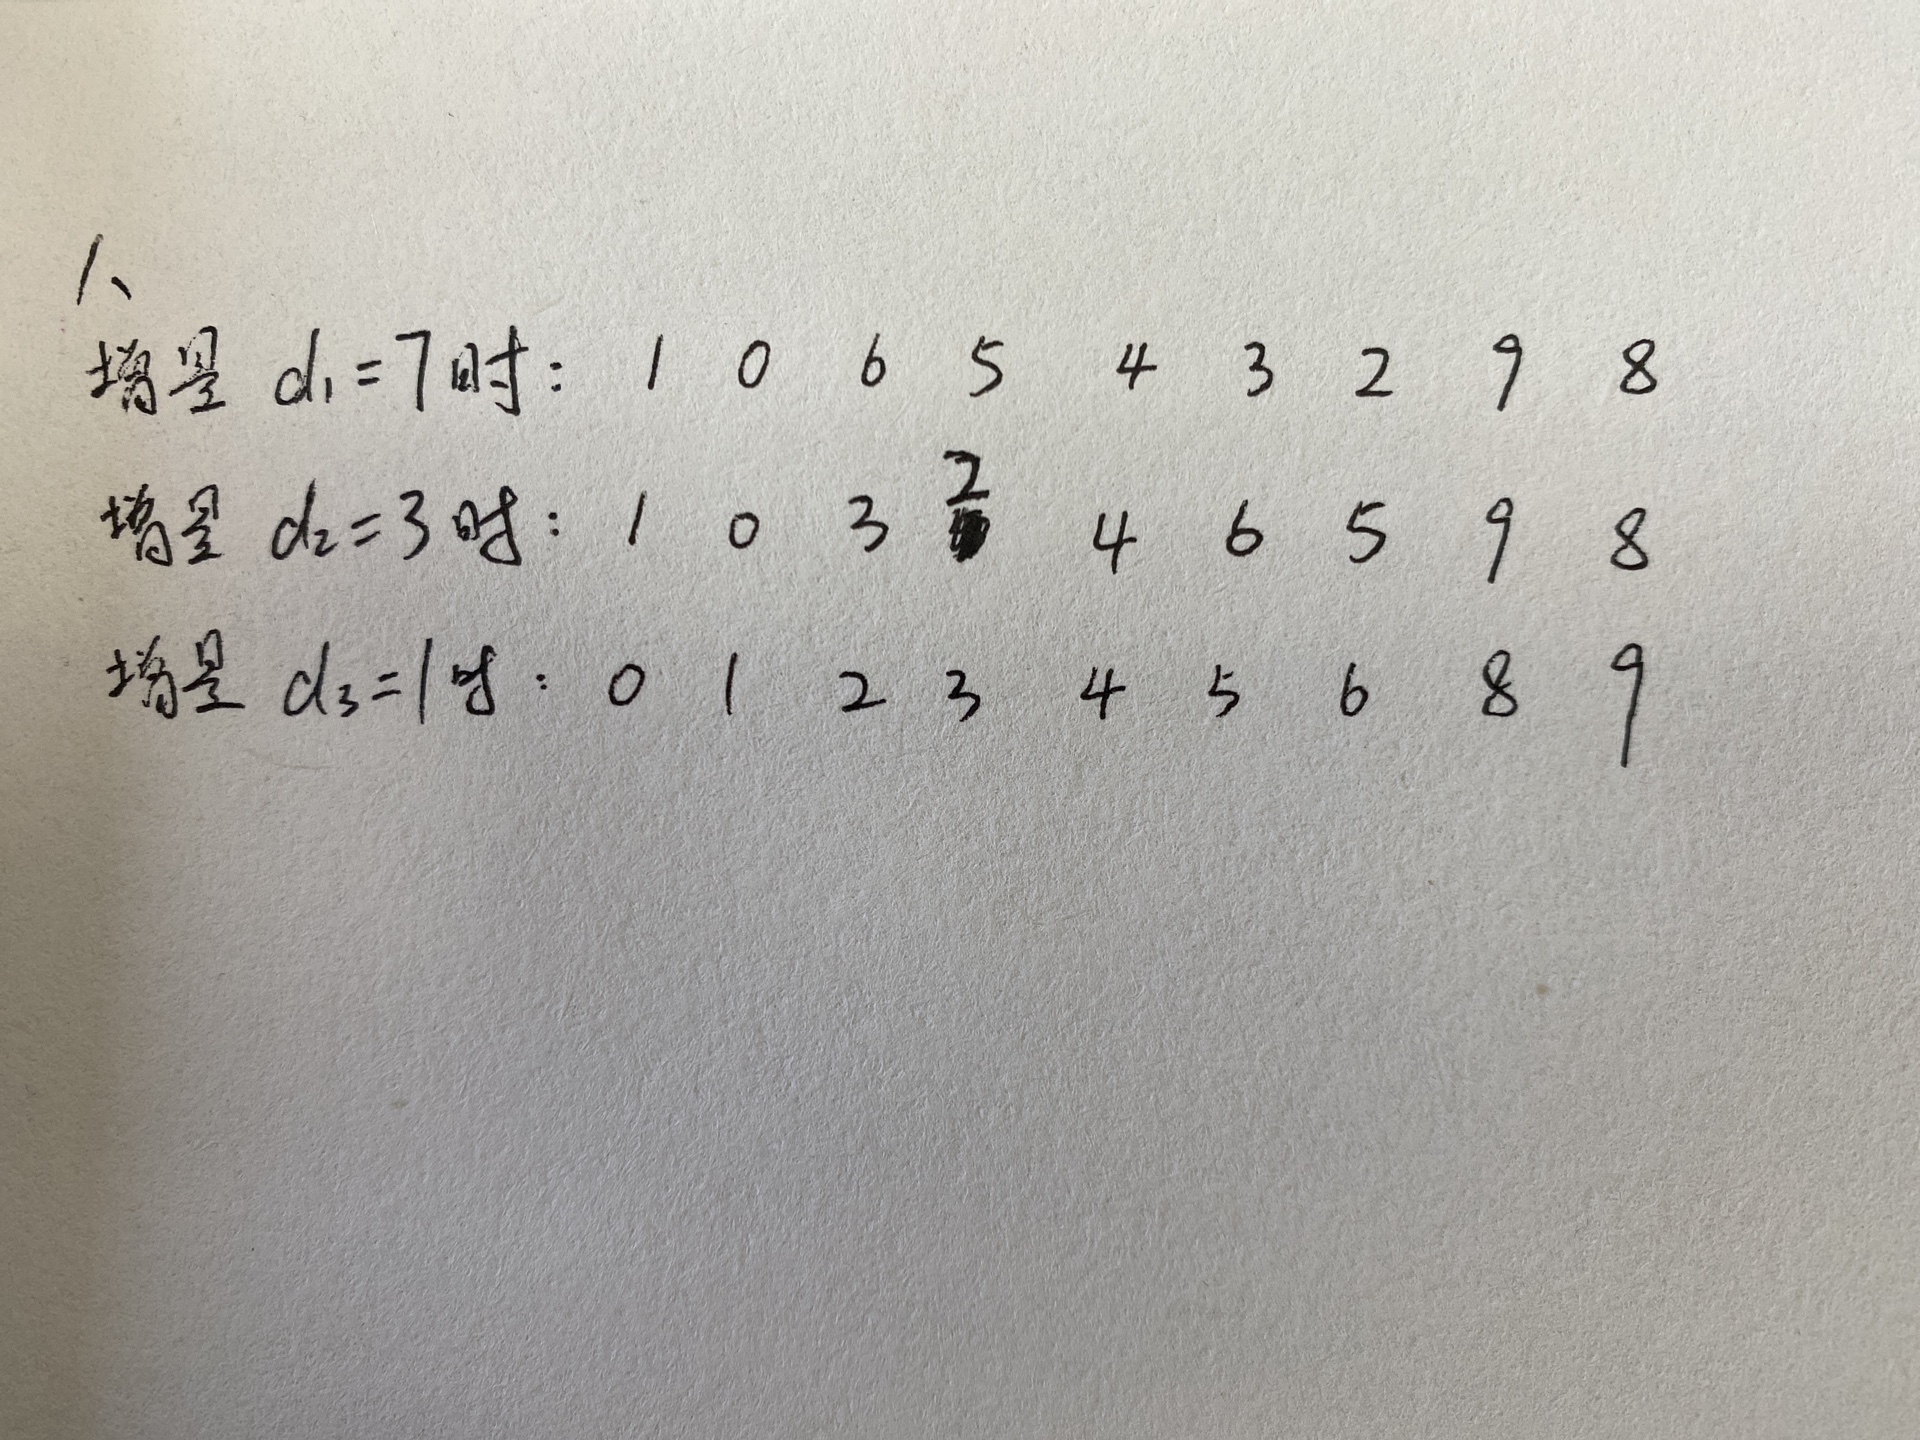 1、
增量 d₁=7时: 1 0 6 5 4 3 2 9 8
增量 d₂=3时: 1 0 3 2 4 6 5 9 8
增量 d₃=1时: 0 1 2 3 4 5 6 8 9